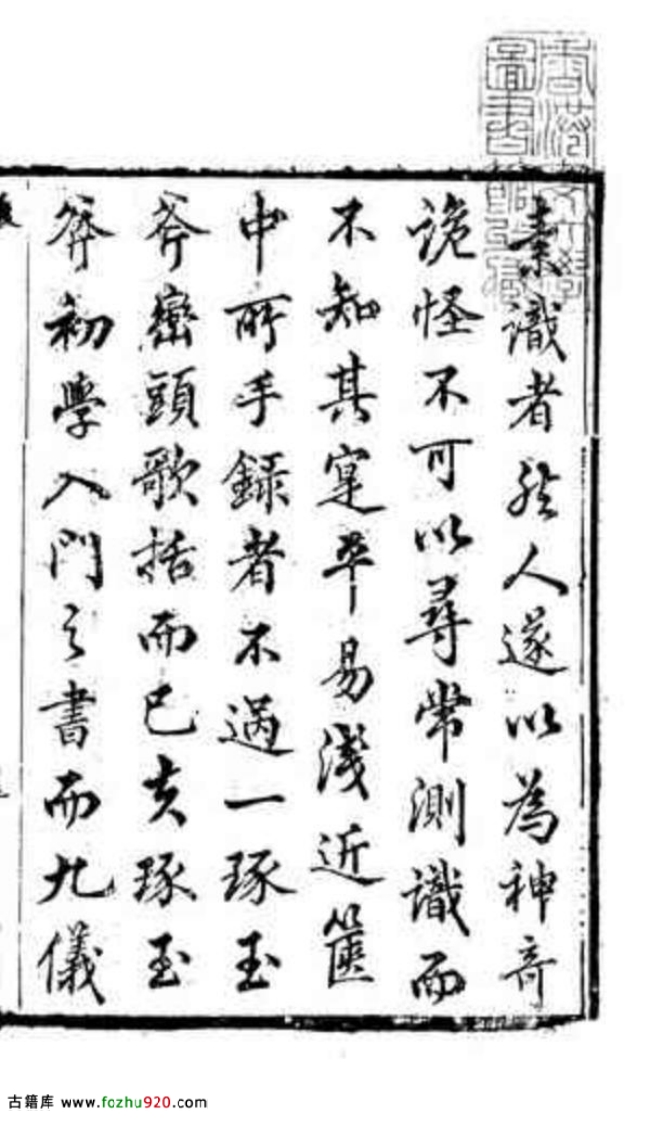 素識者於人遂以為神奇
詭怪不可以尋常測識而
不知其寔平易淺近篋
中所手錄者不過一琢玉
斧巒頭歌括而已夫琢玉
斧初學入門之書而九儀
古籍库 www.fozhu920.com